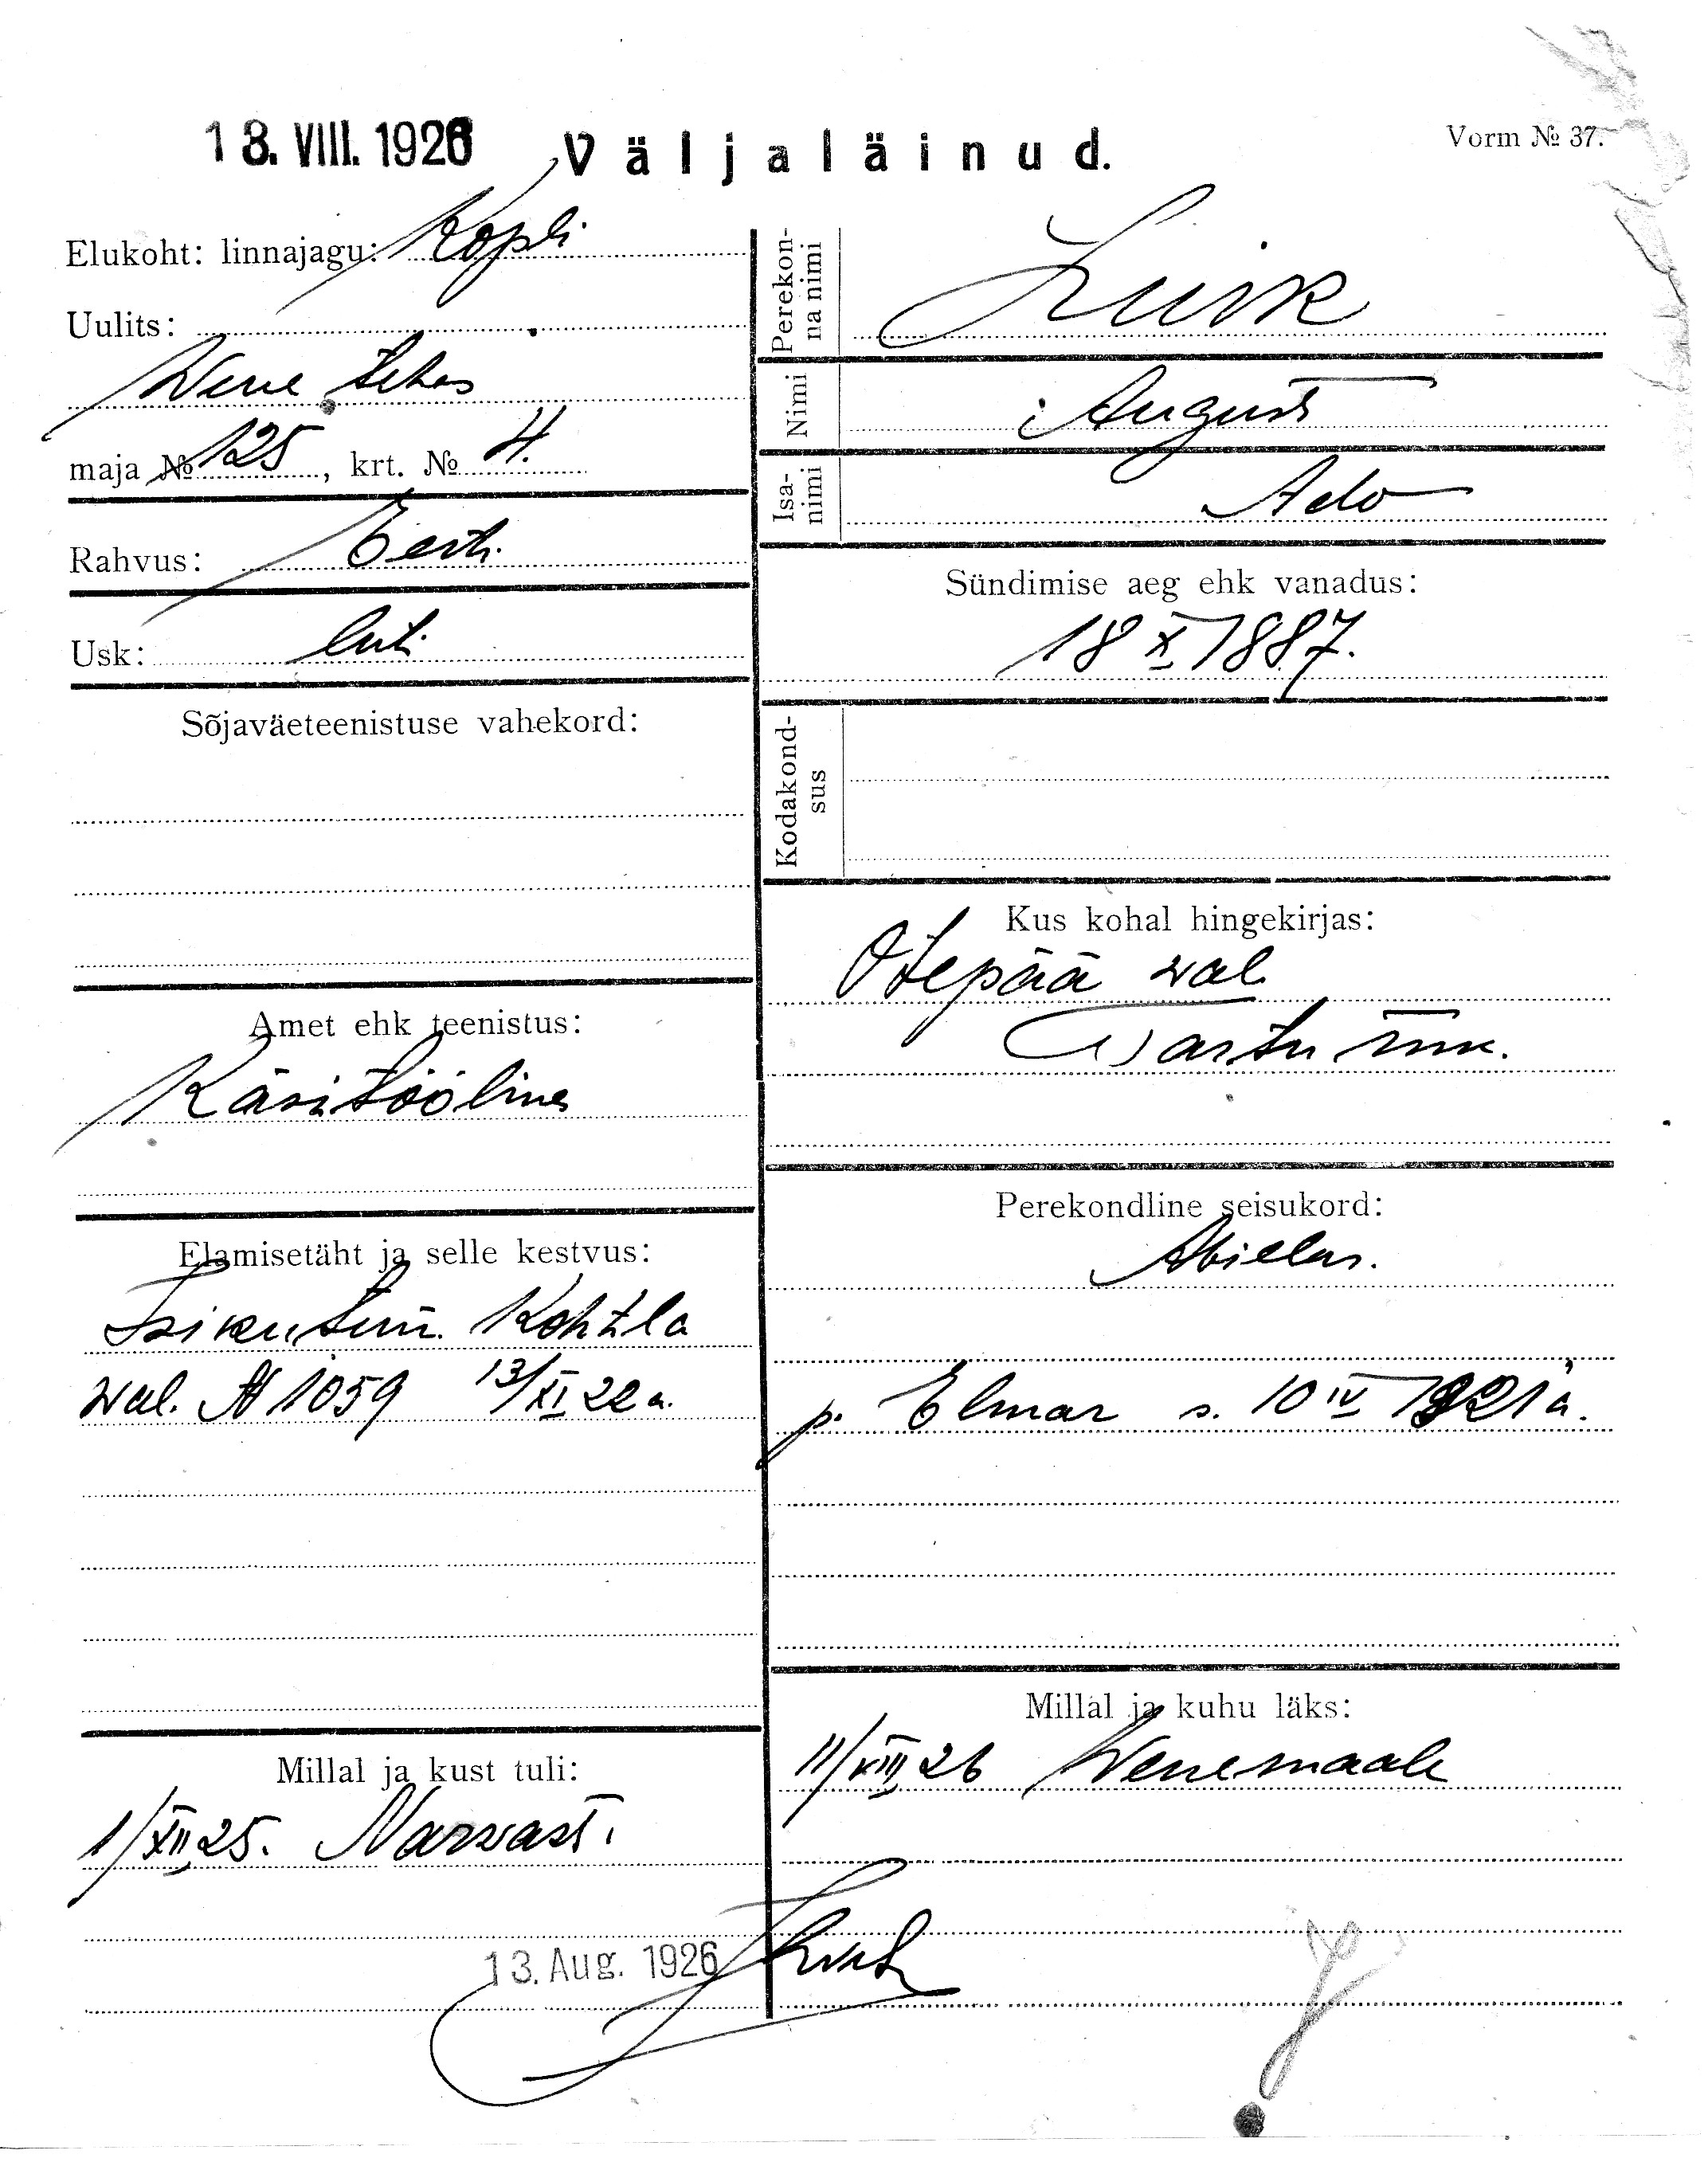 13. VIII. 1926 Väljaläinud.
Vorm № 37.
Elukoht: linnajagu: Kopli
Uulits:
Wene tehas
maja № 125, krt. № 4.
Rahvus: Eesti
Usk: lut.
Sõjaväeteenistuse vahekord:
Amet ehk teenistus:
Käsitööline
Elamisetäht ja selle kestvus:
Isikutun. Kohtla
wal. № 1059 13/XI 22 a.
Millal ja kust tuli:
1/XII 25. Narvast.
13. Aug. 1926
Perekon-
na nimi
Luik
Nimi
August
Isa-
nimi
Ado
Sündimise aeg ehk vanadus:
18 X 1887.
Kodakond-
sus
Kus kohal hingekirjas:
Otepää wal.
Tartu mk.
Perekondline seisukord:
Abielus.
p. Elmar s. 10 IV 1921 a.
Millal ja kuhu läks:
11/VIII 26 Wenemaale